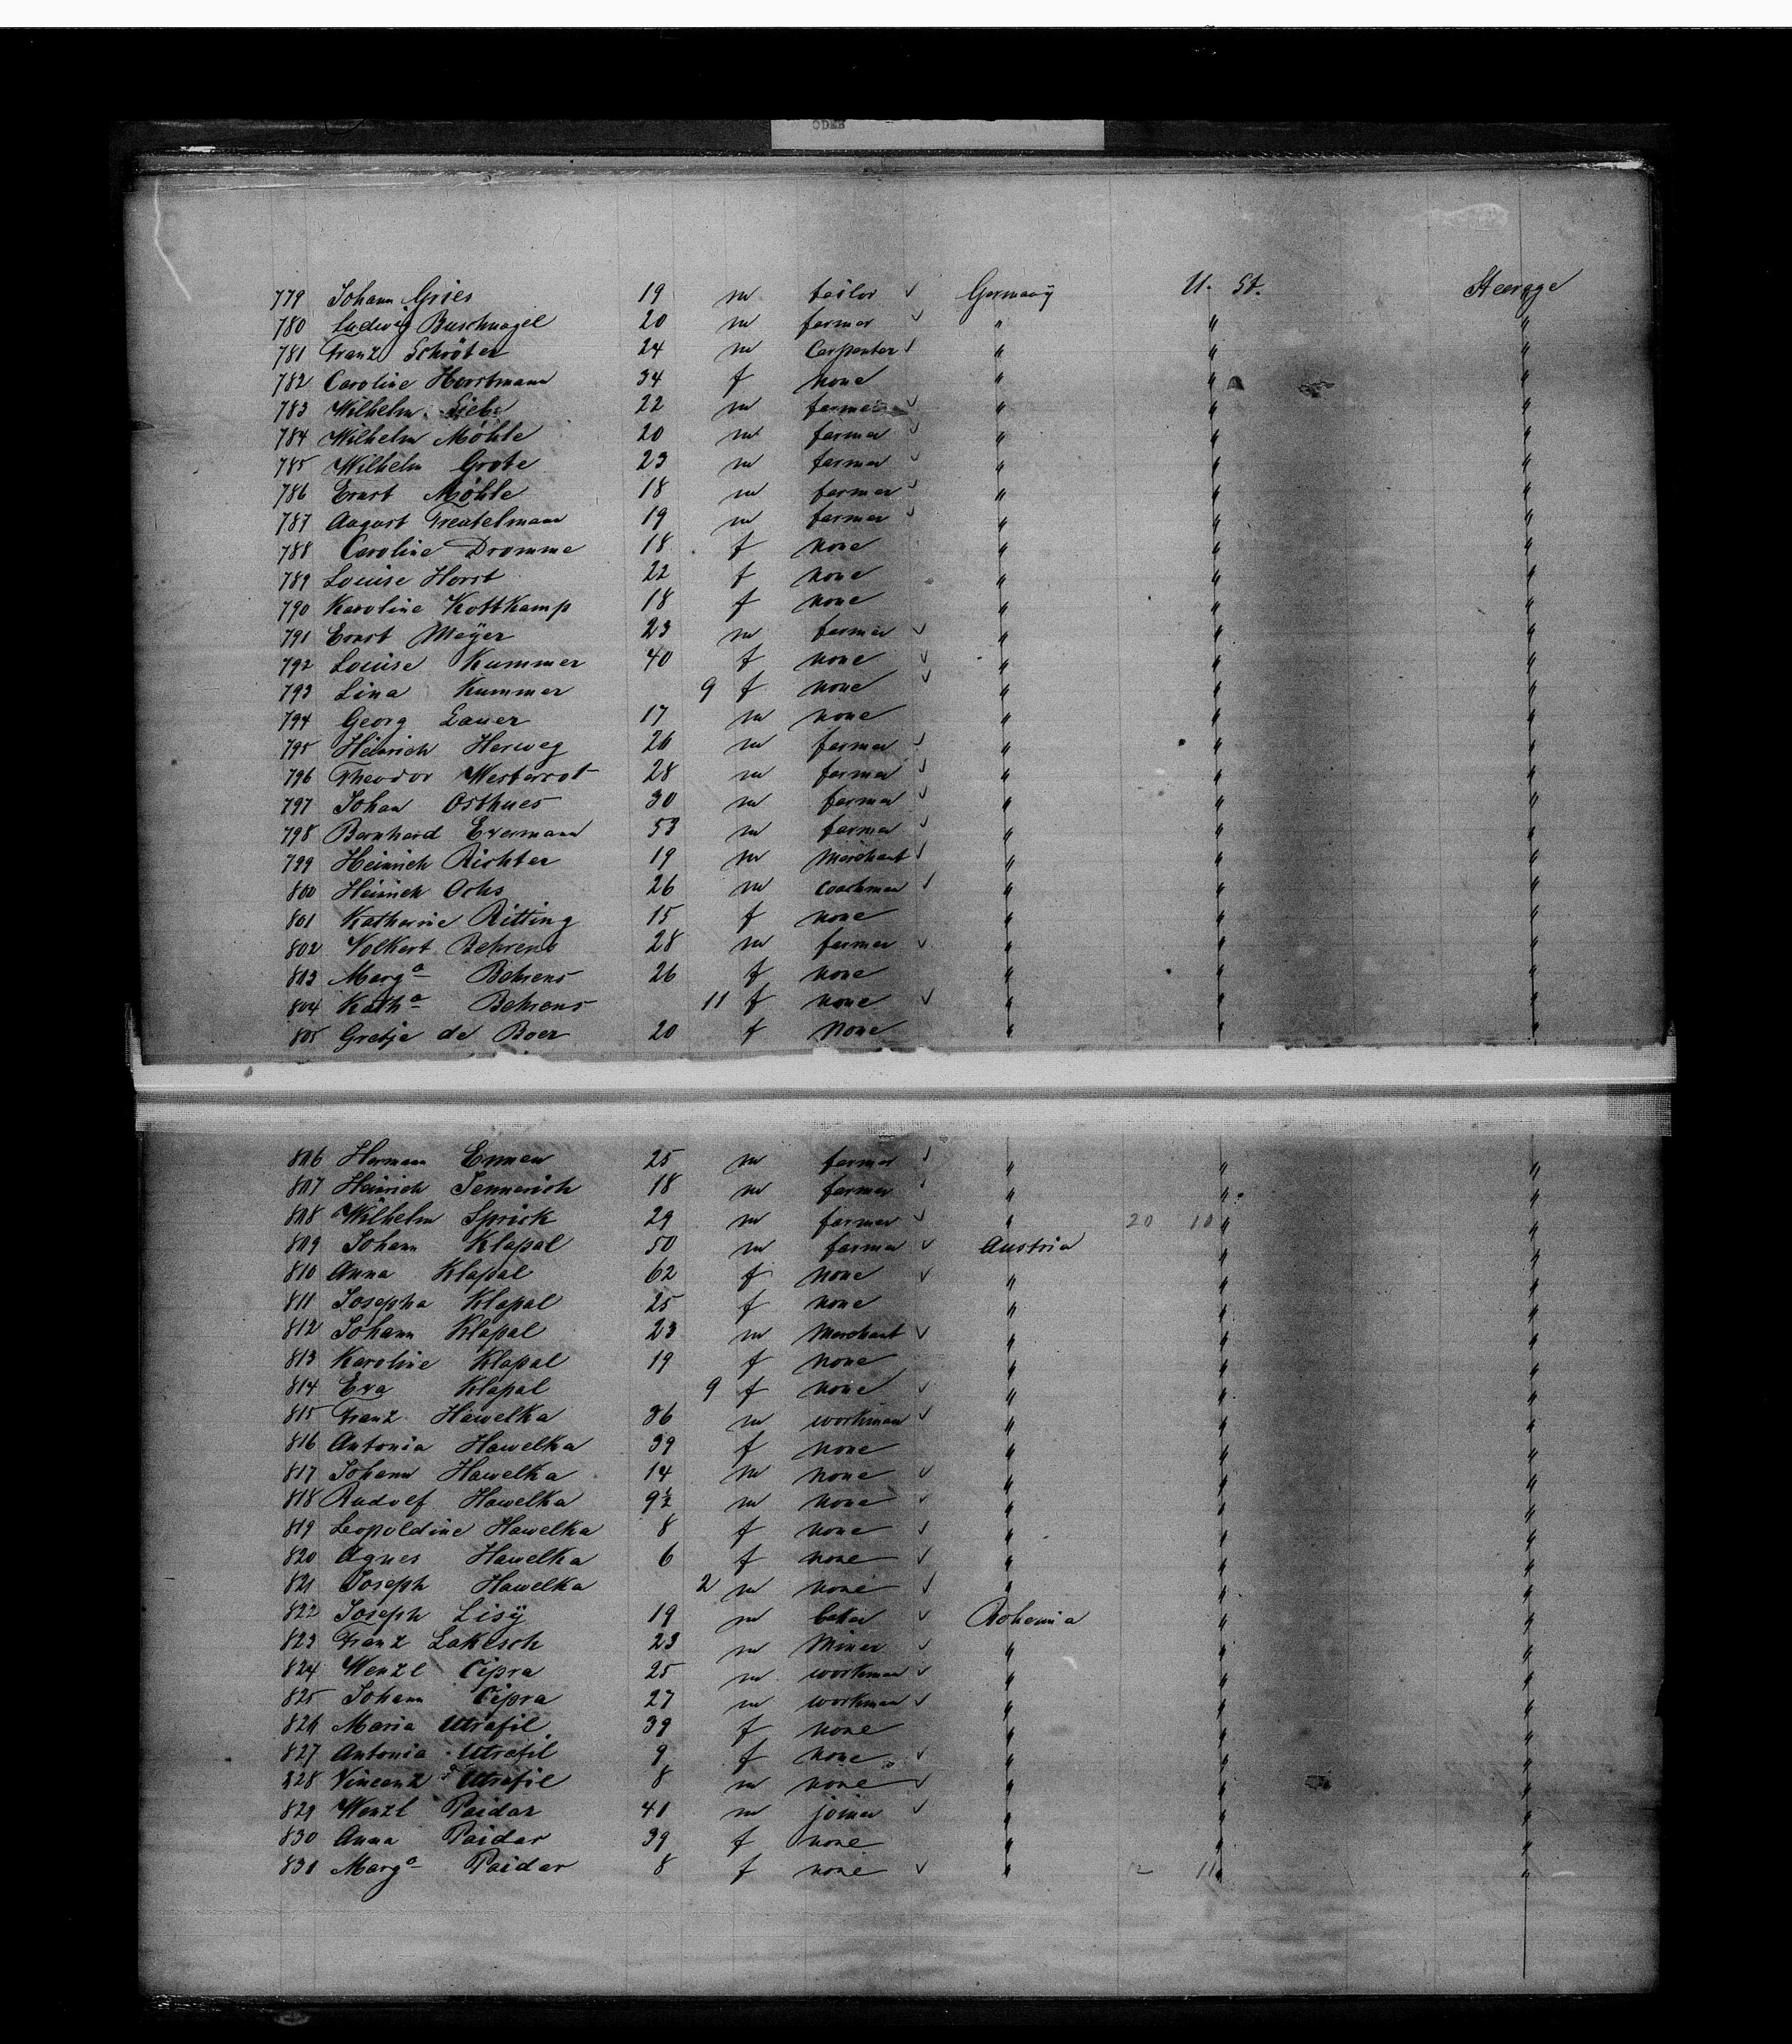 ODER
779 Johann Gries 19 m tailor ✓ Germany U. St. Steerage
780 Ludwig Buschnagel 20 m farmer ✓ " " "
781 Franz Schröter 24 m Carpenter ✓ " " "
782 Caroline Horstmann 34 f none " " "
783 Wilhelm 22 m farmer ✓ " " "
784 Wilhelm Möhle 20 m farmer ✓ " " "
785 Wilhelm Grote 23 m farmer ✓ " " "
786 Ernst Möhle 18 m farmer ✓ " " "
787 August Treutelmann 19 m farmer ✓ " " "
788 Caroline Dromme 18 f none " " "
789 Louise Horst 22 f none " " "
790 Karoline Kottkamp 18 f none " " "
791 Ernst Meÿer 23 m farmer ✓ " " "
792 Louise Kummer 40 f none ✓ " " "
793 Lina Kummer 9 f none ✓ " " "
794 Georg Lauer 17 m none " " "
795 Heinrich Herweg 26 m farmer ✓ " " "
796 Theodor Westerrot 28 m farmer ✓ " " "
797 Johan Osthues 30 m farmer ✓ " " "
798 Bernhard Exermann 53 m farmer ✓ " " "
799 Heinrich Richter 19 m Merchant ✓ " " "
800 Heinrich Ochs 26 m coachman ✓ " " "
801 Katharine Ritting 15 f none " " "
802 Volkert Behrens 28 m farmer ✓ " " "
803 Marga Behrens 26 f none " " "
804 Katha Behrens 11 f none ✓ " " "
805 Gretje de Boer 20 f None " " "
806 Hermann Ennen 25 m farmer ✓ " " "
807 Heinrich Jennerich 18 m farmer ✓ " " "
808 Wilhelm Sprick 29 m farmer ✓ " 20 10 " "
809 Johann Klapal 50 m farmer ✓ Austria " "
810 Anna Klapal 62 f none ✓ " " "
811 Josepha Klapal 25 f none " " "
812 Johann Klapal 23 m Merchant ✓ " " "
813 Karoline Klapal 19 f none " " "
814 Eva Klapal 9 f none ✓ " " "
815 Franz Hawelka 36 m workman ✓ " " "
816 Antonia Hawelka 39 f none " " "
817 Johann Hawelka 14 m none ✓ " " "
818 Rudolf Hawelka 9½ m none ✓ " " "
819 Leopoldine Hawelka 8 f none ✓ " " "
820 Agnes Hawelka 6 f none ✓ " " "
821 Joseph Hawelka 2 m none ✓ " " "
822 Joseph Lisÿ 19 m baker ✓ Bohemia " "
823 Franz Lakesch 23 m Miner ✓ " " "
824 Wenzl Cipra 25 m workman ✓ " " "
825 Johann Cipra 27 m workman ✓ " " "
826 Maria Utrafil 39 f none " " "
827 Antonia Utrafil 9 f none ✓ " " "
828 Vincenz Utrafil 8 m none ✓ " " "
829 Wenzl Paidar 41 m joiner ✓ " " "
830 Anna Paidar 39 f none " " "
831 Marga Paidar 8 f none ✓ " 12 11 " "